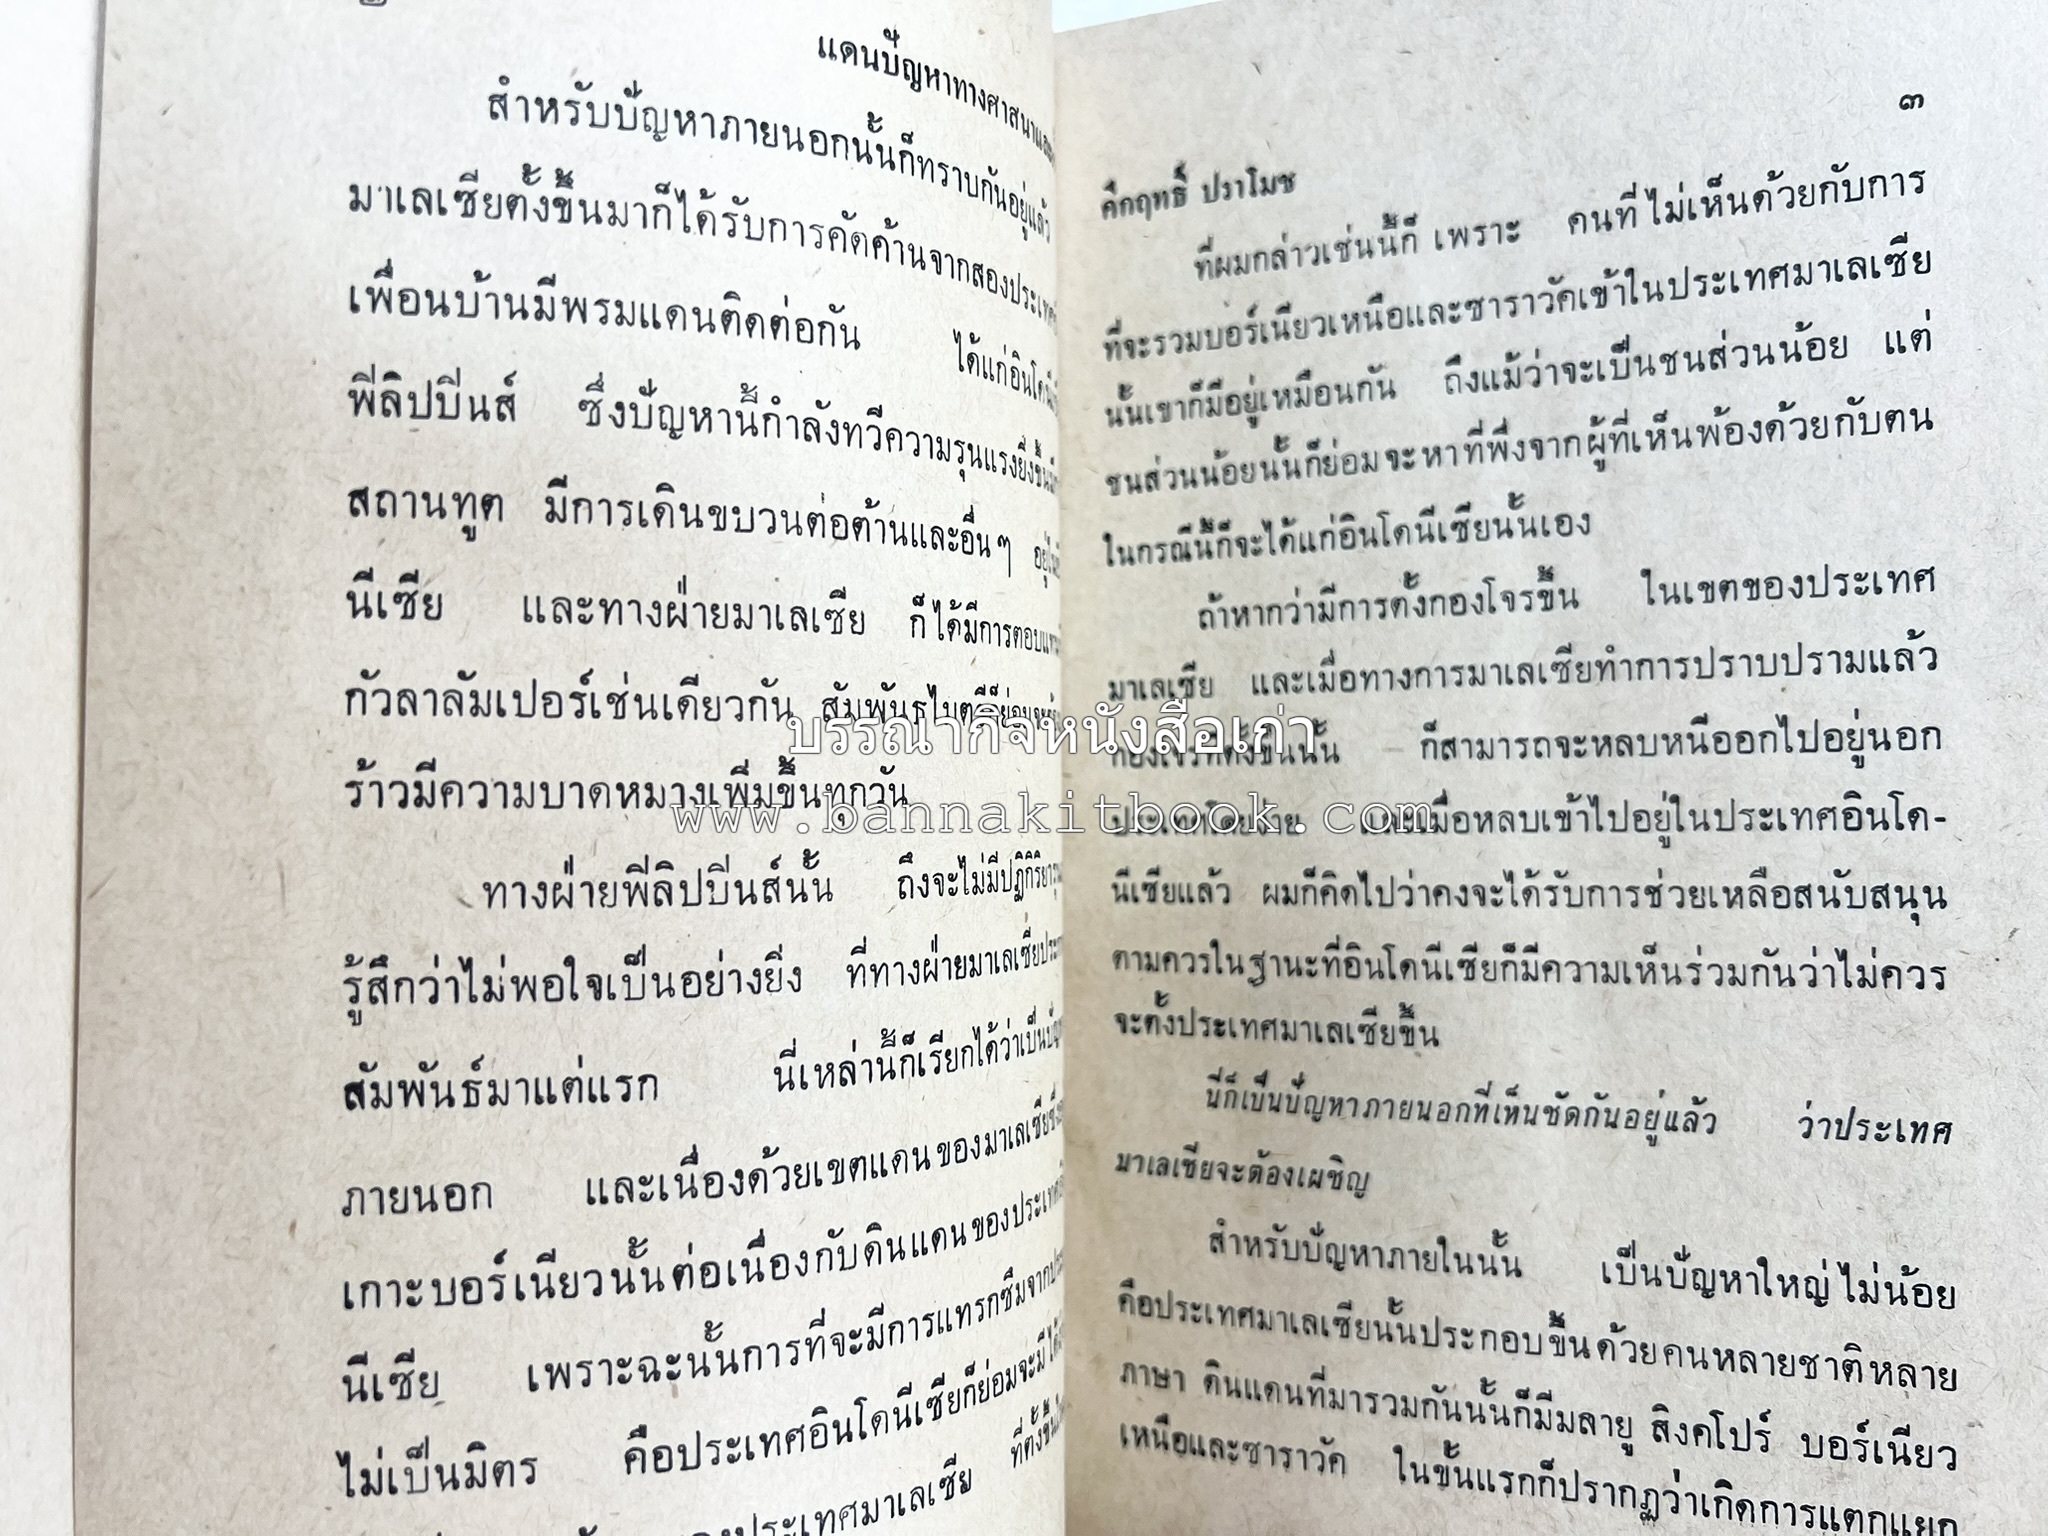 แดนปัญหาทางศาสนา
สำหรับปัญหาภายนอกนั้นก็ทราบกันอยู่แล้ว
มาเลเซียตั้งขึ้นมาก็ได้รับการคัดค้านจากสองประเทศ
เพื่อนบ้านมีพรมแดนติดต่อกัน ได้แก่อินโดนี
ฟีลิปปีนส์ ซึ่งปัญหานี้กำลังทวีความรุนแรงยิ่งขึ้น
สถานทูต มีการเดินขบวนต่อต้านและอื่นๆ
นีเซีย และทางฝ่ายมาเลเซีย ก็ได้มีการตอบแทน
กัวลาลัมเปอร์เช่นเดียวกัน สัมพันธไมตรีก็ย่อมจะ
ร้าวมีความบาดหมางเพิ่มขึ้นทุกวัน
ทางฝ่ายฟีลิปปีนส์นั้น ถึงจะไม่มีปฏิกิริยา
รู้สึกว่าไม่พอใจเป็นอย่างยิ่ง ที่ทางฝ่ายมาเลเซีย
สัมพันธ์มาแต่แรก นี่เหล่านี้ก็เรียกได้ว่าเป็น
ภายนอก และเนื่องด้วยเขตแดนของมาเลเซีย
เกาะบอร์เนียวนั้นต่อเนื่องกับดินแดนของประเทศ
นีเซีย เพราะฉะนั้นการที่จะมีการแทรกซึมจาก
ไม่เป็นมิตร คือประเทศอินโดนีเซียก็ย่อมจะมีได้
ประเทศมาเลเซีย ที่ตั้งขึ้น
๓
คึกฤทธิ์ ปราโมช
ที่ผมกล่าวเช่นนี้ก็ เพราะ คนที่ไม่เห็นด้วยกับการ
ที่จะรวมบอร์เนียวเหนือและซาราวัคเข้าในประเทศมาเลเซีย
นั้นเขาก็มีอยู่เหมือนกัน ถึงแม้ว่าจะเป็นชนส่วนน้อย แต่
ชนส่วนน้อยนั้นก็ย่อมจะหาที่พึ่งจากผู้ที่เห็นพ้องด้วยกับตน
ในกรณีนี้ก็จะได้แก่อินโดนีเซียนั้นเอง
ถ้าหากว่ามีการตั้งกองโจรขึ้น ในเขตของประเทศ
มาเลเซีย และเมื่อทางการมาเลเซียทำการปราบปรามแล้ว
กองโจรที่ตั้งขึ้นนั้น ก็สามารถจะหลบหนีออกไปอยู่นอก
ประเทศโดยง่าย และเมื่อหลบเข้าไปอยู่ในประเทศอินโด-
นีเซียแล้ว ผมก็คิดไปว่าคงจะได้รับการช่วยเหลือสนับสนุน
ตามควรในฐานะที่อินโดนีเซียก็มีความเห็นร่วมกันว่าไม่ควร
จะตั้งประเทศมาเลเซียขึ้น
นี่ก็เป็นปัญหาภายนอกที่เห็นชัดกันอยู่แล้ว ว่าประเทศ
มาเลเซียจะต้องเผชิญ
สำหรับปัญหาภายในนั้น เป็นปัญหาใหญ่ไม่น้อย
คือประเทศมาเลเซียนั้นประกอบขึ้นด้วยคนหลายชาติหลาย
ภาษา ดินแดนที่มารวมกันนั้นก็มีมลายู สิงคโปร์ บอร์เนียว
เหนือและซาราวัค ในขั้นแรกก็ปรากฏว่าเกิดการแตกแยก
บรรณากิจหนังสือเก่า
www.bannakitbook.com